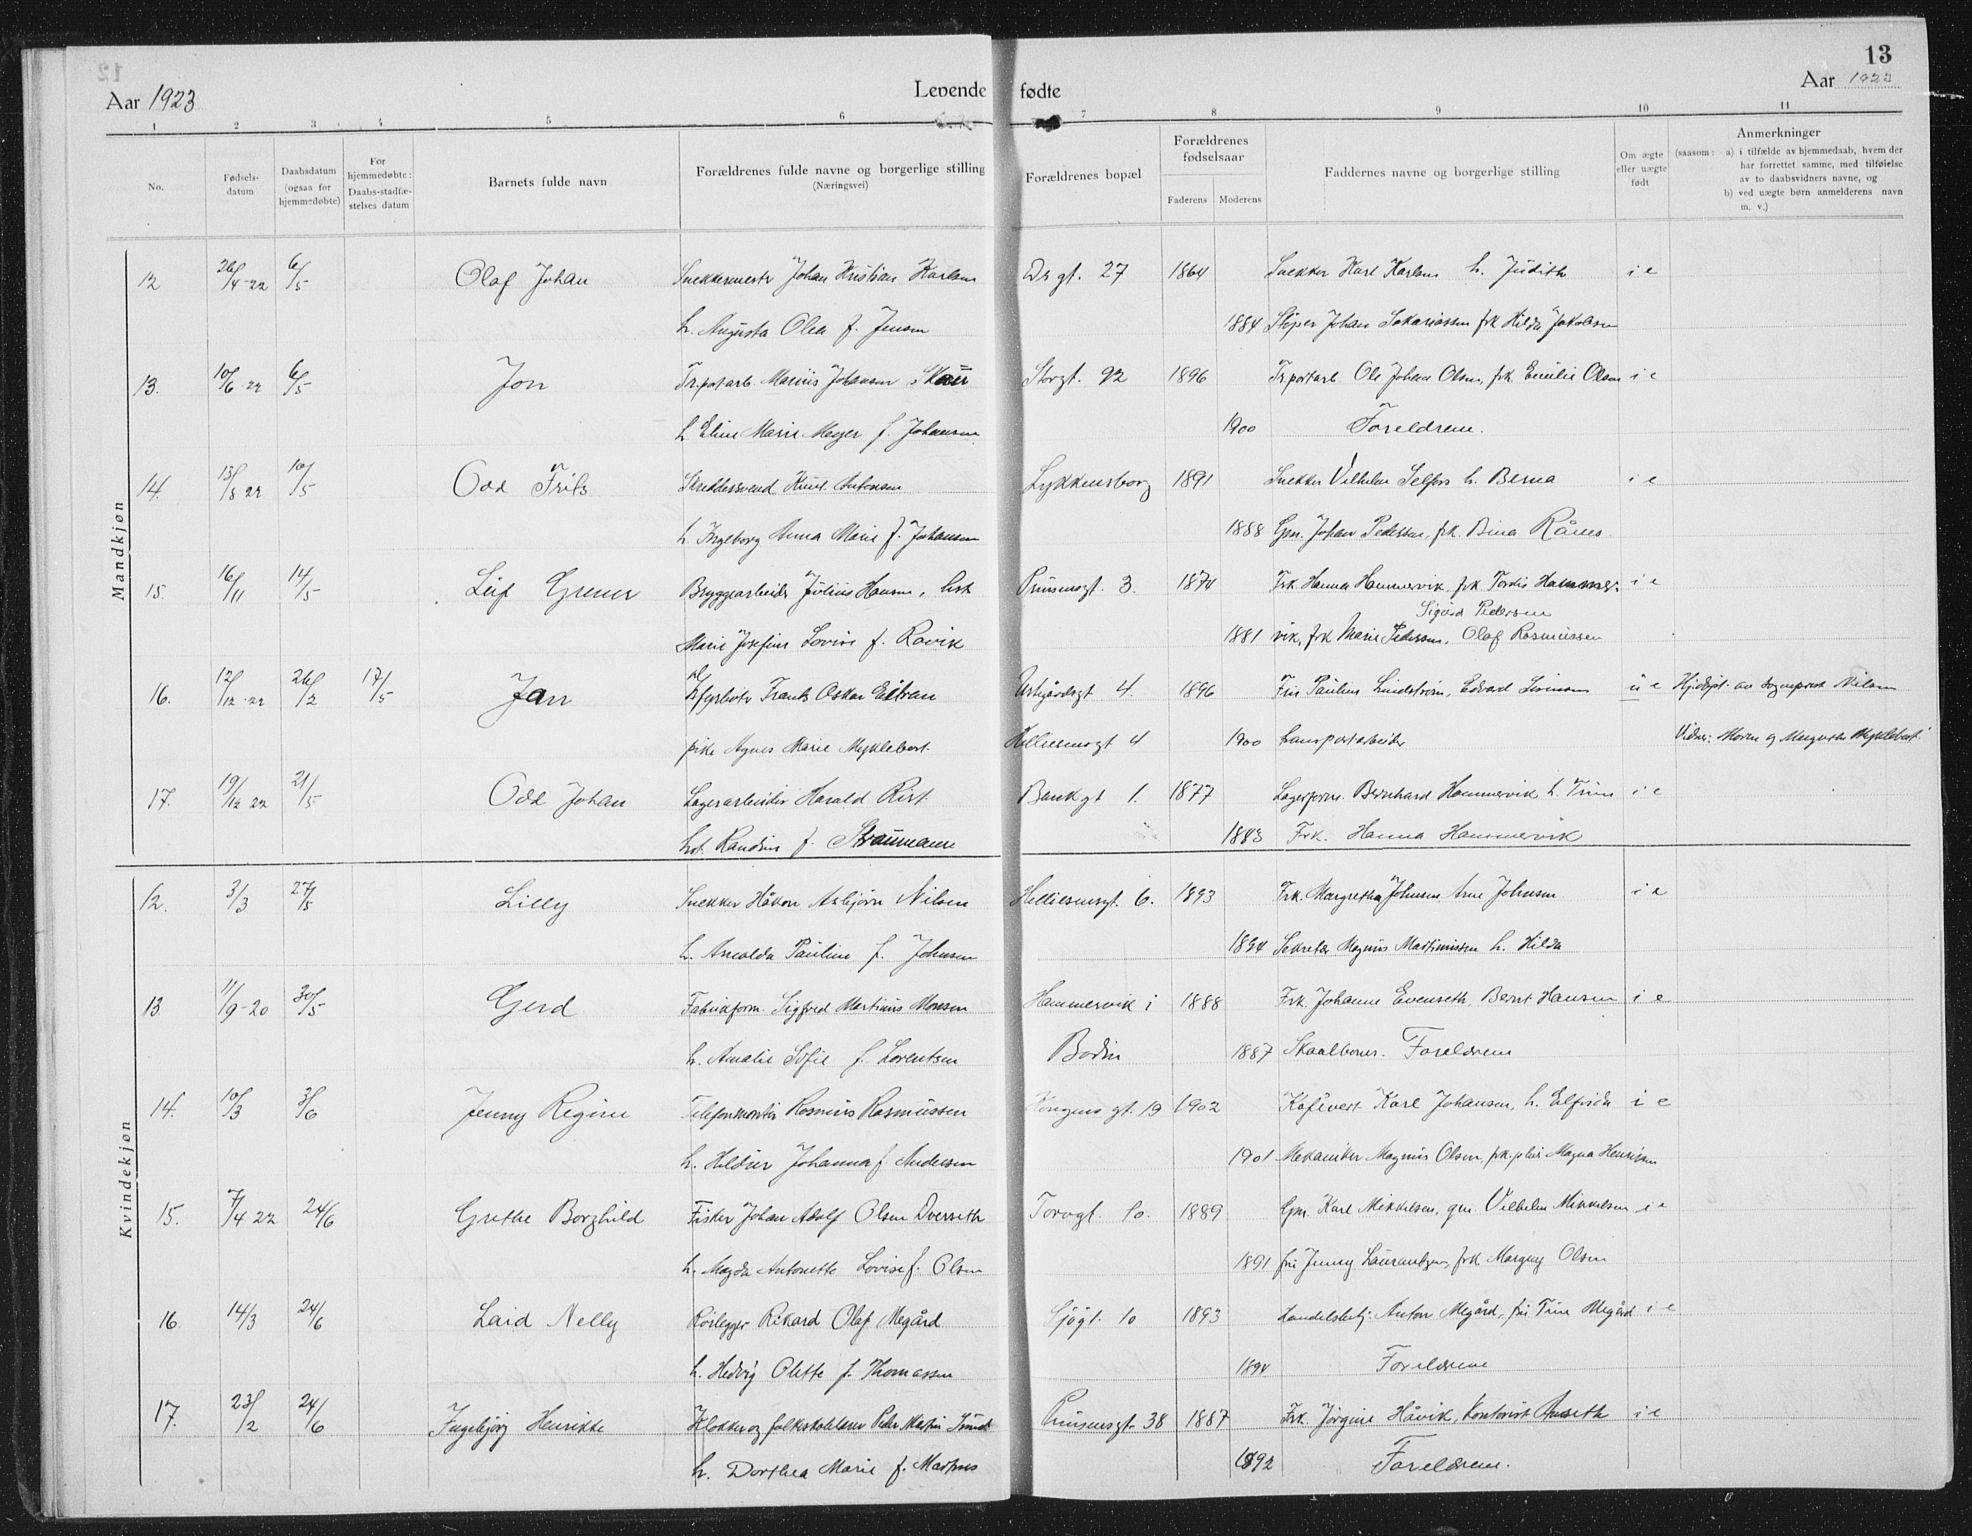 Aar 1923
Levende fødte
13
Aar 1923
1 2 3 4 5 6 7 8 9 10 11
No.
Fødsels-datum
Daabsdatum (ogsaa for hjemmedøbte)
For hjemmedøbte: Daabs-stadfæstelses datum
Barnets fulde navn
Forældrenes fulde navne og borgerlige stilling (Næringsvei)
Forældrenes bopæl
Forældrenes fødselsaar
Faderens Moderens
Faddernes navne og borgerlige stilling
Om ægte eller uægte født
Anmerkninger
(saasom: a) i tilfælde av hjemmedaab, hvem der
har forrettet samme, med tilføielse
av to daabsvidners navne, og
b) ved uægte børn anmelderens navn
m. v.)
Mandkjøn
12 26/4-22 6/5 Olaf Johan Snekkermester Johan Kristian Karlsen Dr gt. 27 1864 Snekker Karl Karlsen h. Judith i e
h. Augusta Olea f. Jensen 1884 Støper Johan Sakariassen frk Hilda Jakobsen
13. 10/6-22 6/5 Jon Tr.portarb. Marius Johansen Skaur Storgt. 92 1896 Tr.portarb Ole Johan Olsen, frk. Emilie Olsen i e
h. Eline Marie Meyer f. Johansen 1900 Foreldrene.
14. 13/8 22 10/5 Odd Frits Skreddersvend Knut Antonsen Lykkensborg 1891 Snekker Vilhelm Selfors h. Berna i e
h. Ingeborg Anna Marie f. Johansen 1888 Gm. Johan Pedersen, frk. Bina Rånes.
15 16/11 14/5 Leif Grener Bryggearbeider Julius Hansen, hst Prinsensgt. 3. 1874 Frk. Hanna Hammervik, frk Tordis Hammer- i e
Sigurd Pedersen
Marie Josefine Lovise f. Rovik 1881 vik, frk Marie Pedersen, Olaf Rasmussen
16. 12/12-22 26/2 17/5 Jan Frants Oskar Eitran 4. 1896 Fru Pauline Lindstrøm, Edvard u e Hj.døpt. av sogneprest Nilsen
pike Agnes Marie Myklebost. Helliesensgt 4 1900 transportarbeider Vidner: Moren og Margrethe Myklebost.
17. 19/12 22 21/5 Odd Johan Lagerarbeider Harald Rist. Bankgt 1. 1877 Lagerform. Bernhard Hammervik h. Trine i e
hst. Randine f. Straumane 1883 Frk. Hanna Hammervik
Kvindekjøn
12. 3/3 27/5 Lilly Snekker Håkon Asbjørn Nilsen Helliesensgt. 6. 1893 Frk. Margretha Johnsen Arne Johnsen i e
h. Arnolda Pauline f. Johnsen 1894 Sekretær Magnus Martinussen h. Hilda
13 11/9-20 30/5 Gerd Fabrikform. Sigfred Martinus Monsen Hammervik i 1888 Frk. Johanne Evenseth, Bernt Hansen i e
h. Amalie Sofie f. Lorentsen Bodin 1887 Skaalbones. Foreldrene
14. 10/3 3/6 Jenny Regine Telefonmontør Rasmus Rasmussen Kongens gt. 19 1902 Kafévert Karl Johansen, h. Elfrida i e
h. Hildur Johanna f. Andersen 1901 Mekaniker Magnus Olsen, Magna Henriksen
15. 7/4 22 24/6 Grethe Borghild Fisker Johan Adolf Olsen Dverseth Torvgt. 10. 1889 Gm. Karl Mikkelsen, gm. Vilhelm Mikkelsen i e
h. Magda Antonette Lovise f. Olsen 1891 fru Jenny Laurantzen, frk Margny Olsen
16. 14/3 24/6 Laid Nelly Rørlegger Rikard Olaf Megård Sjøgt. 10 1893 Handelsbetj. Anton Megård, fru Trine Megård i e
h. Hedvig Olette f. Thomassen 1894 Foreldrene
17. 23/2 24/6 Ingebjørg Henrikke Klokker og folkeskolelærer Peder Martin Prinsensgt. 38 1887 Frk. Jørgine Håvik, Kontorist i e
h. Dorthea Marie f. 1892 Foreldrene.